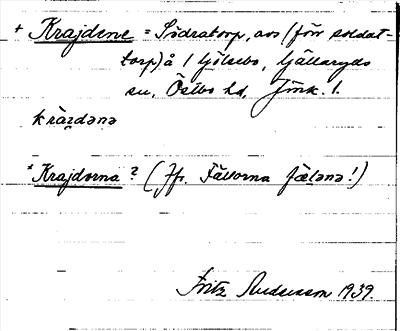 + Krajdene = Södratorp, avs (förr soldat-
torp) å 1 Ljölsbo, Kjällaryds
sn, Östbo hd, Jönk. l.
kràɪdənə
* Krajdorna ? (Jfr. Fållorna fælənə!)
Fritz Andersson 1939.